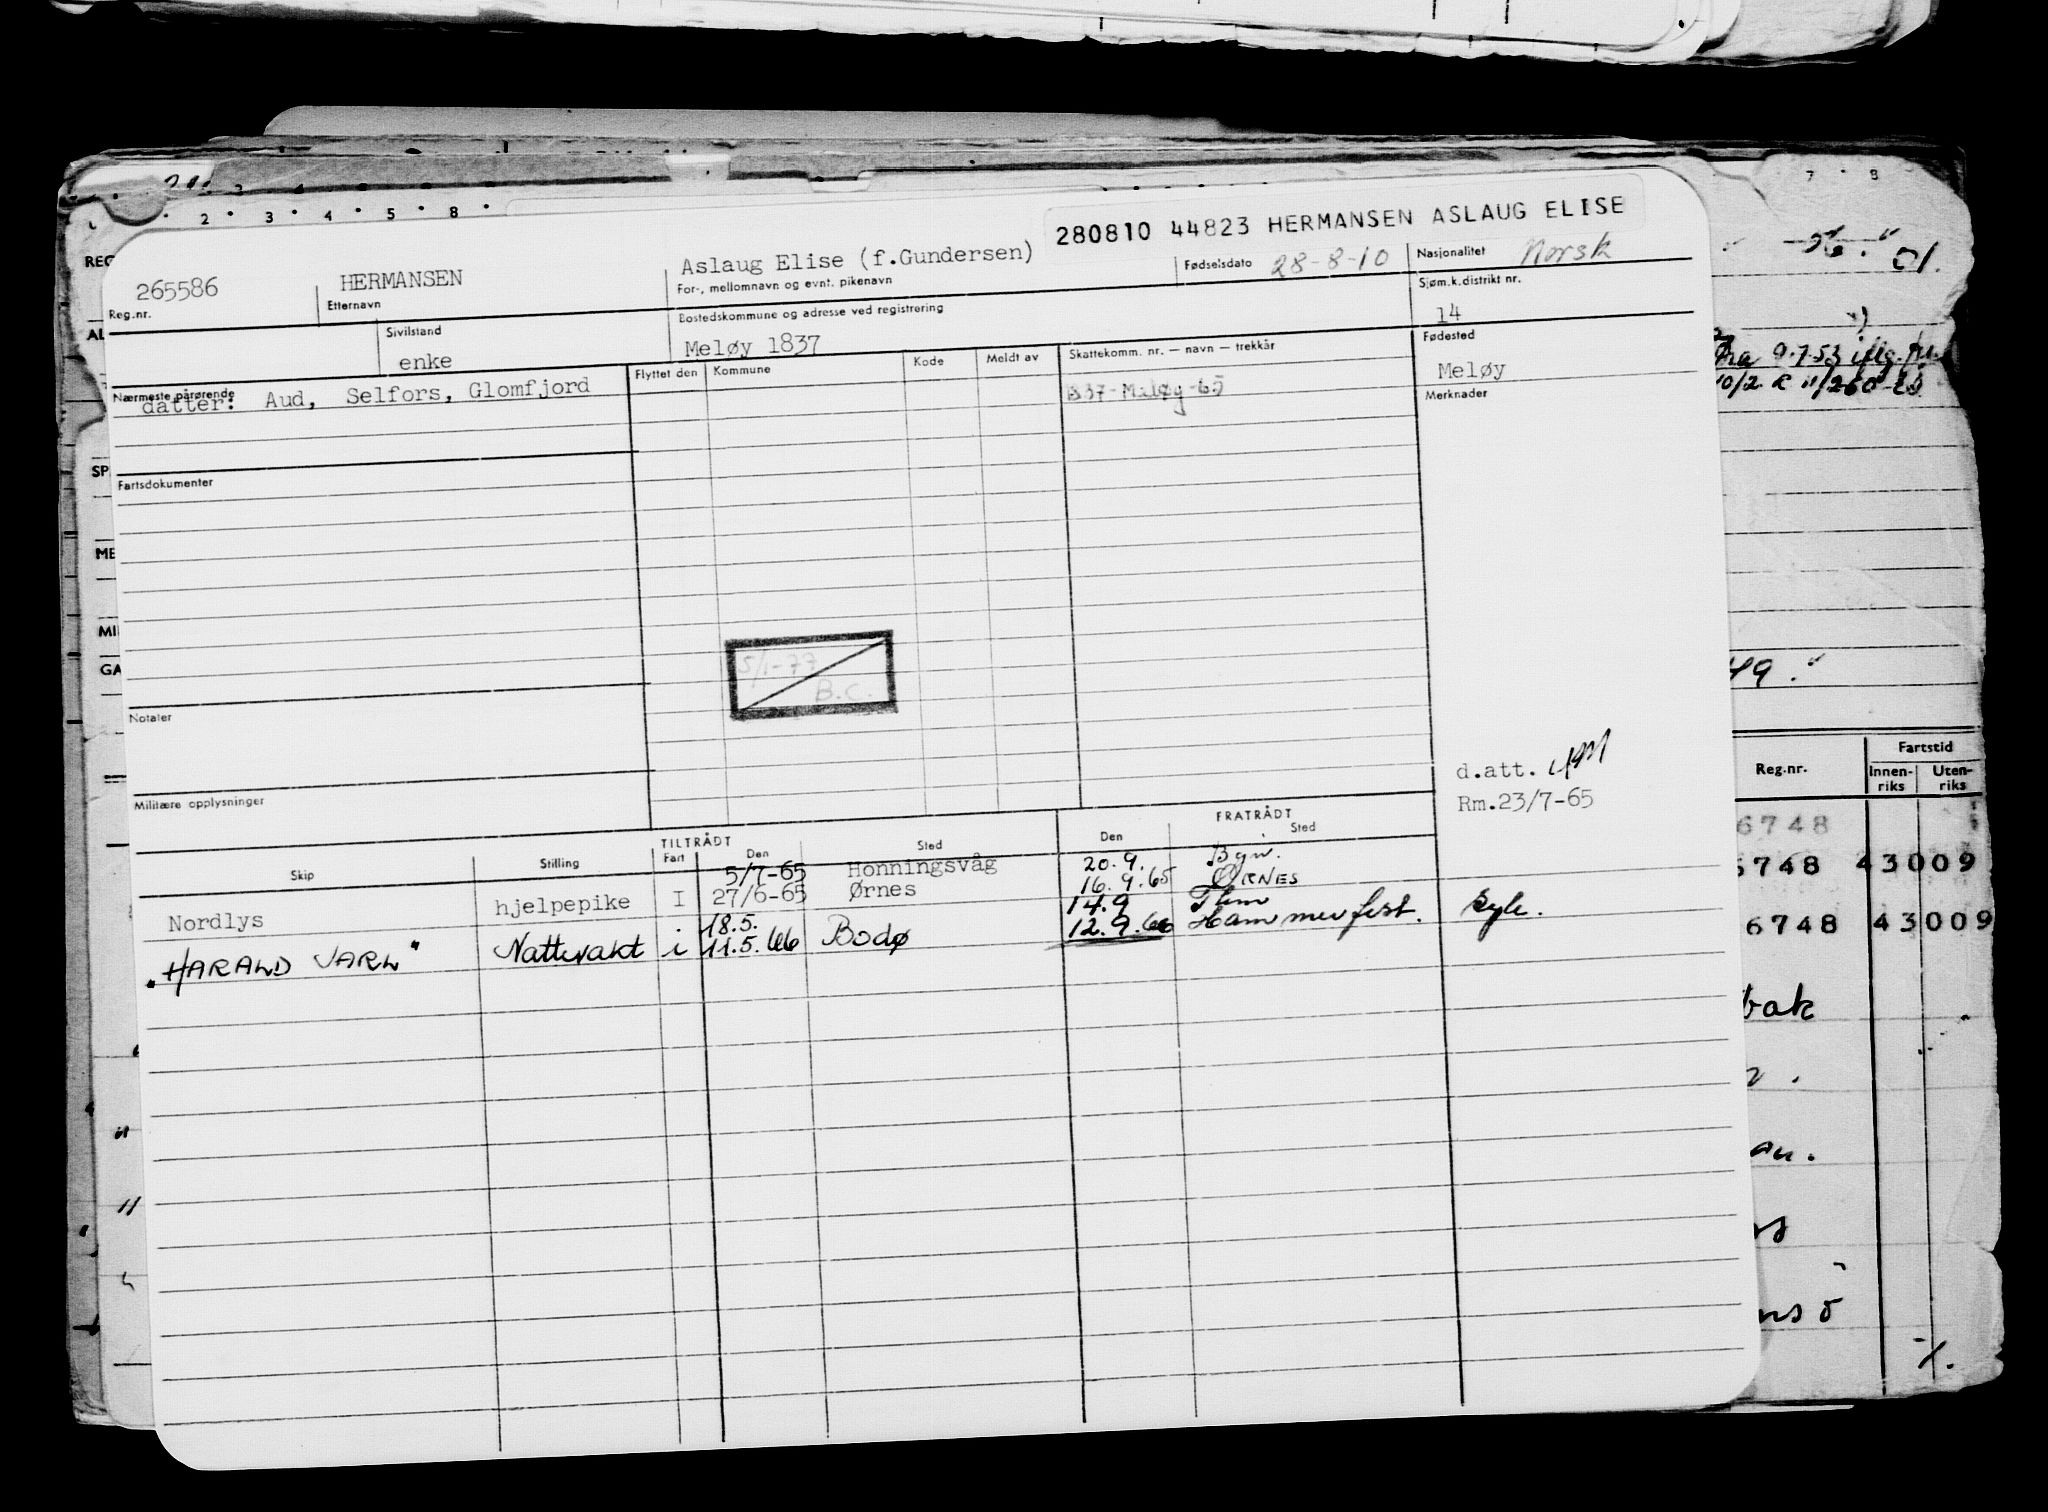 280810 44823 HERMANSEN ASLAUG ELISE
265586 HERMANSEN Aslaug Elise (f.Gundersen) Fødselsdato 28-8-10 Nasjonalitet Norsk
Reg.nr. Etternavn For-, mellomnavn og evnt. pikenavn Sjøm.k.distrikt nr.
14
Sivilstand Bostedskommune og adresse ved registrering Fødested
enke Meløy 1837 Meløy
Nærmeste pårørende Flyttet den Kommune Kode Meldt av Skattekomm. nr. — navn — trekkår Merknader
datter: Aud, Selfors, Glomfjord
Meløy-65
Fartsdokumenter
5/1-77
B.C.
Notater
Militære opplysninger
d.att.
Rm.23/7-65
TILTRÅDT FRATRÅDT
Skip Stilling Fart Den Sted Den Sted
5/7-65 Honningsvåg 20.9.
Nordlys hjelpepike I 27/6-65 Ørnes 16.9.65 ØRNES
18.5. 14.9
"HARALD JARL" Nattevakt i 11.5.66 Bodø 12.9.66 Hammerfest.
2 3 4 5 8
7 8
01.
49.
Reg.nr. Fartstid
Innen-riks Uten-riks
6748
6748 43009
6748 43009
bak